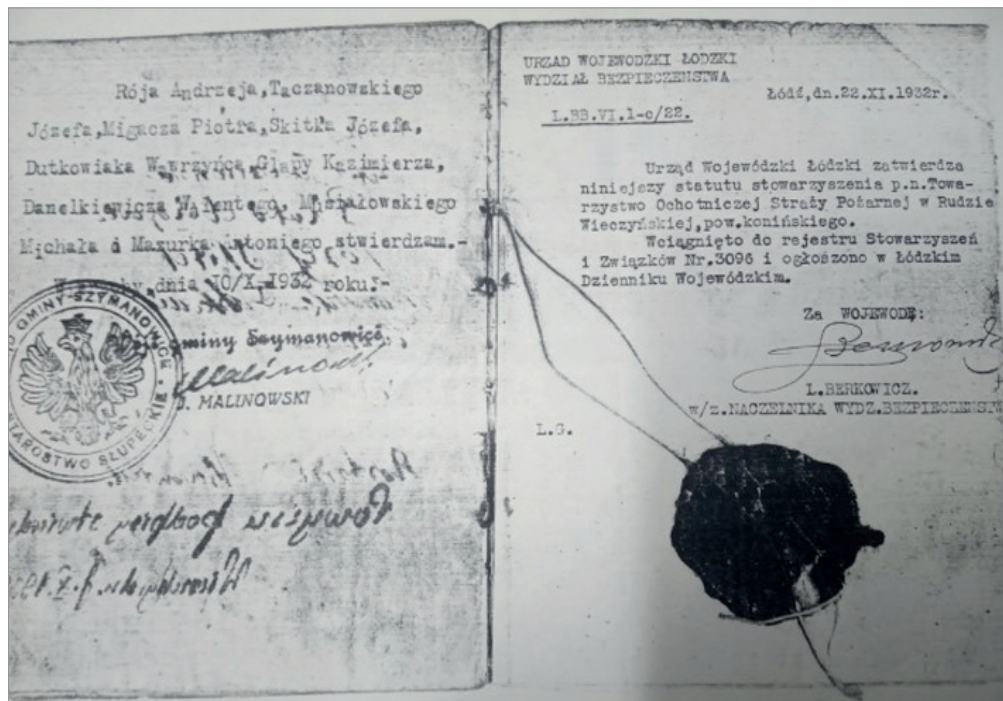 Rója Andrzeja,Taczanowskiego
Józefa,Migacza Piotra,Skitka Józefa,
Dutkowiaka Wawrzyńca,Glapy Kazimierza,
Danelkiewicza Walentego, Misiałowskiego
Michała i Mazurka Antoniego stwierdzam.-
dnia 10/X.1932 roku.-
gminy Szymanowice
Malinowski
J. MALINOWSKI
GMINY SZYMANOWICE
STAROSTWO SŁUPECKIE
URZĄD WOJEWODZKI ŁODZKI
WYDZIAŁ BEZPIECZENSTWA
Łódź,dn.22.XI.1932r.
L.BB.VI.1-c/22.
Urząd Wojewódzki Łódzki zatwierdza
niniejszy statutu stowarzyszenia p.n.Towa-
rzystwo Ochotniczej Straży Pożarnej w Rudzie
Wieczyńskiej,pow.konińskiego.
Wciągnięto do rejestru Stowarzyszeń
i Związków Nr.3096 i ogłoszono w Łódzkim
Dzienniku Wojewódzkim.
Za WOJEWODĘ:
L.BERKOWICZ.
w/z.NACZELNIKA WYDZ.BEZPIECZENST
L.G.